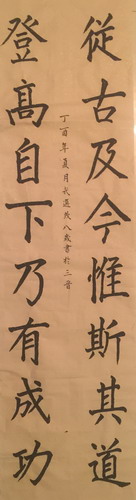 從古及今惟斯其道
丁酉年夏月 八歲書於三
登髙自下乃有成功